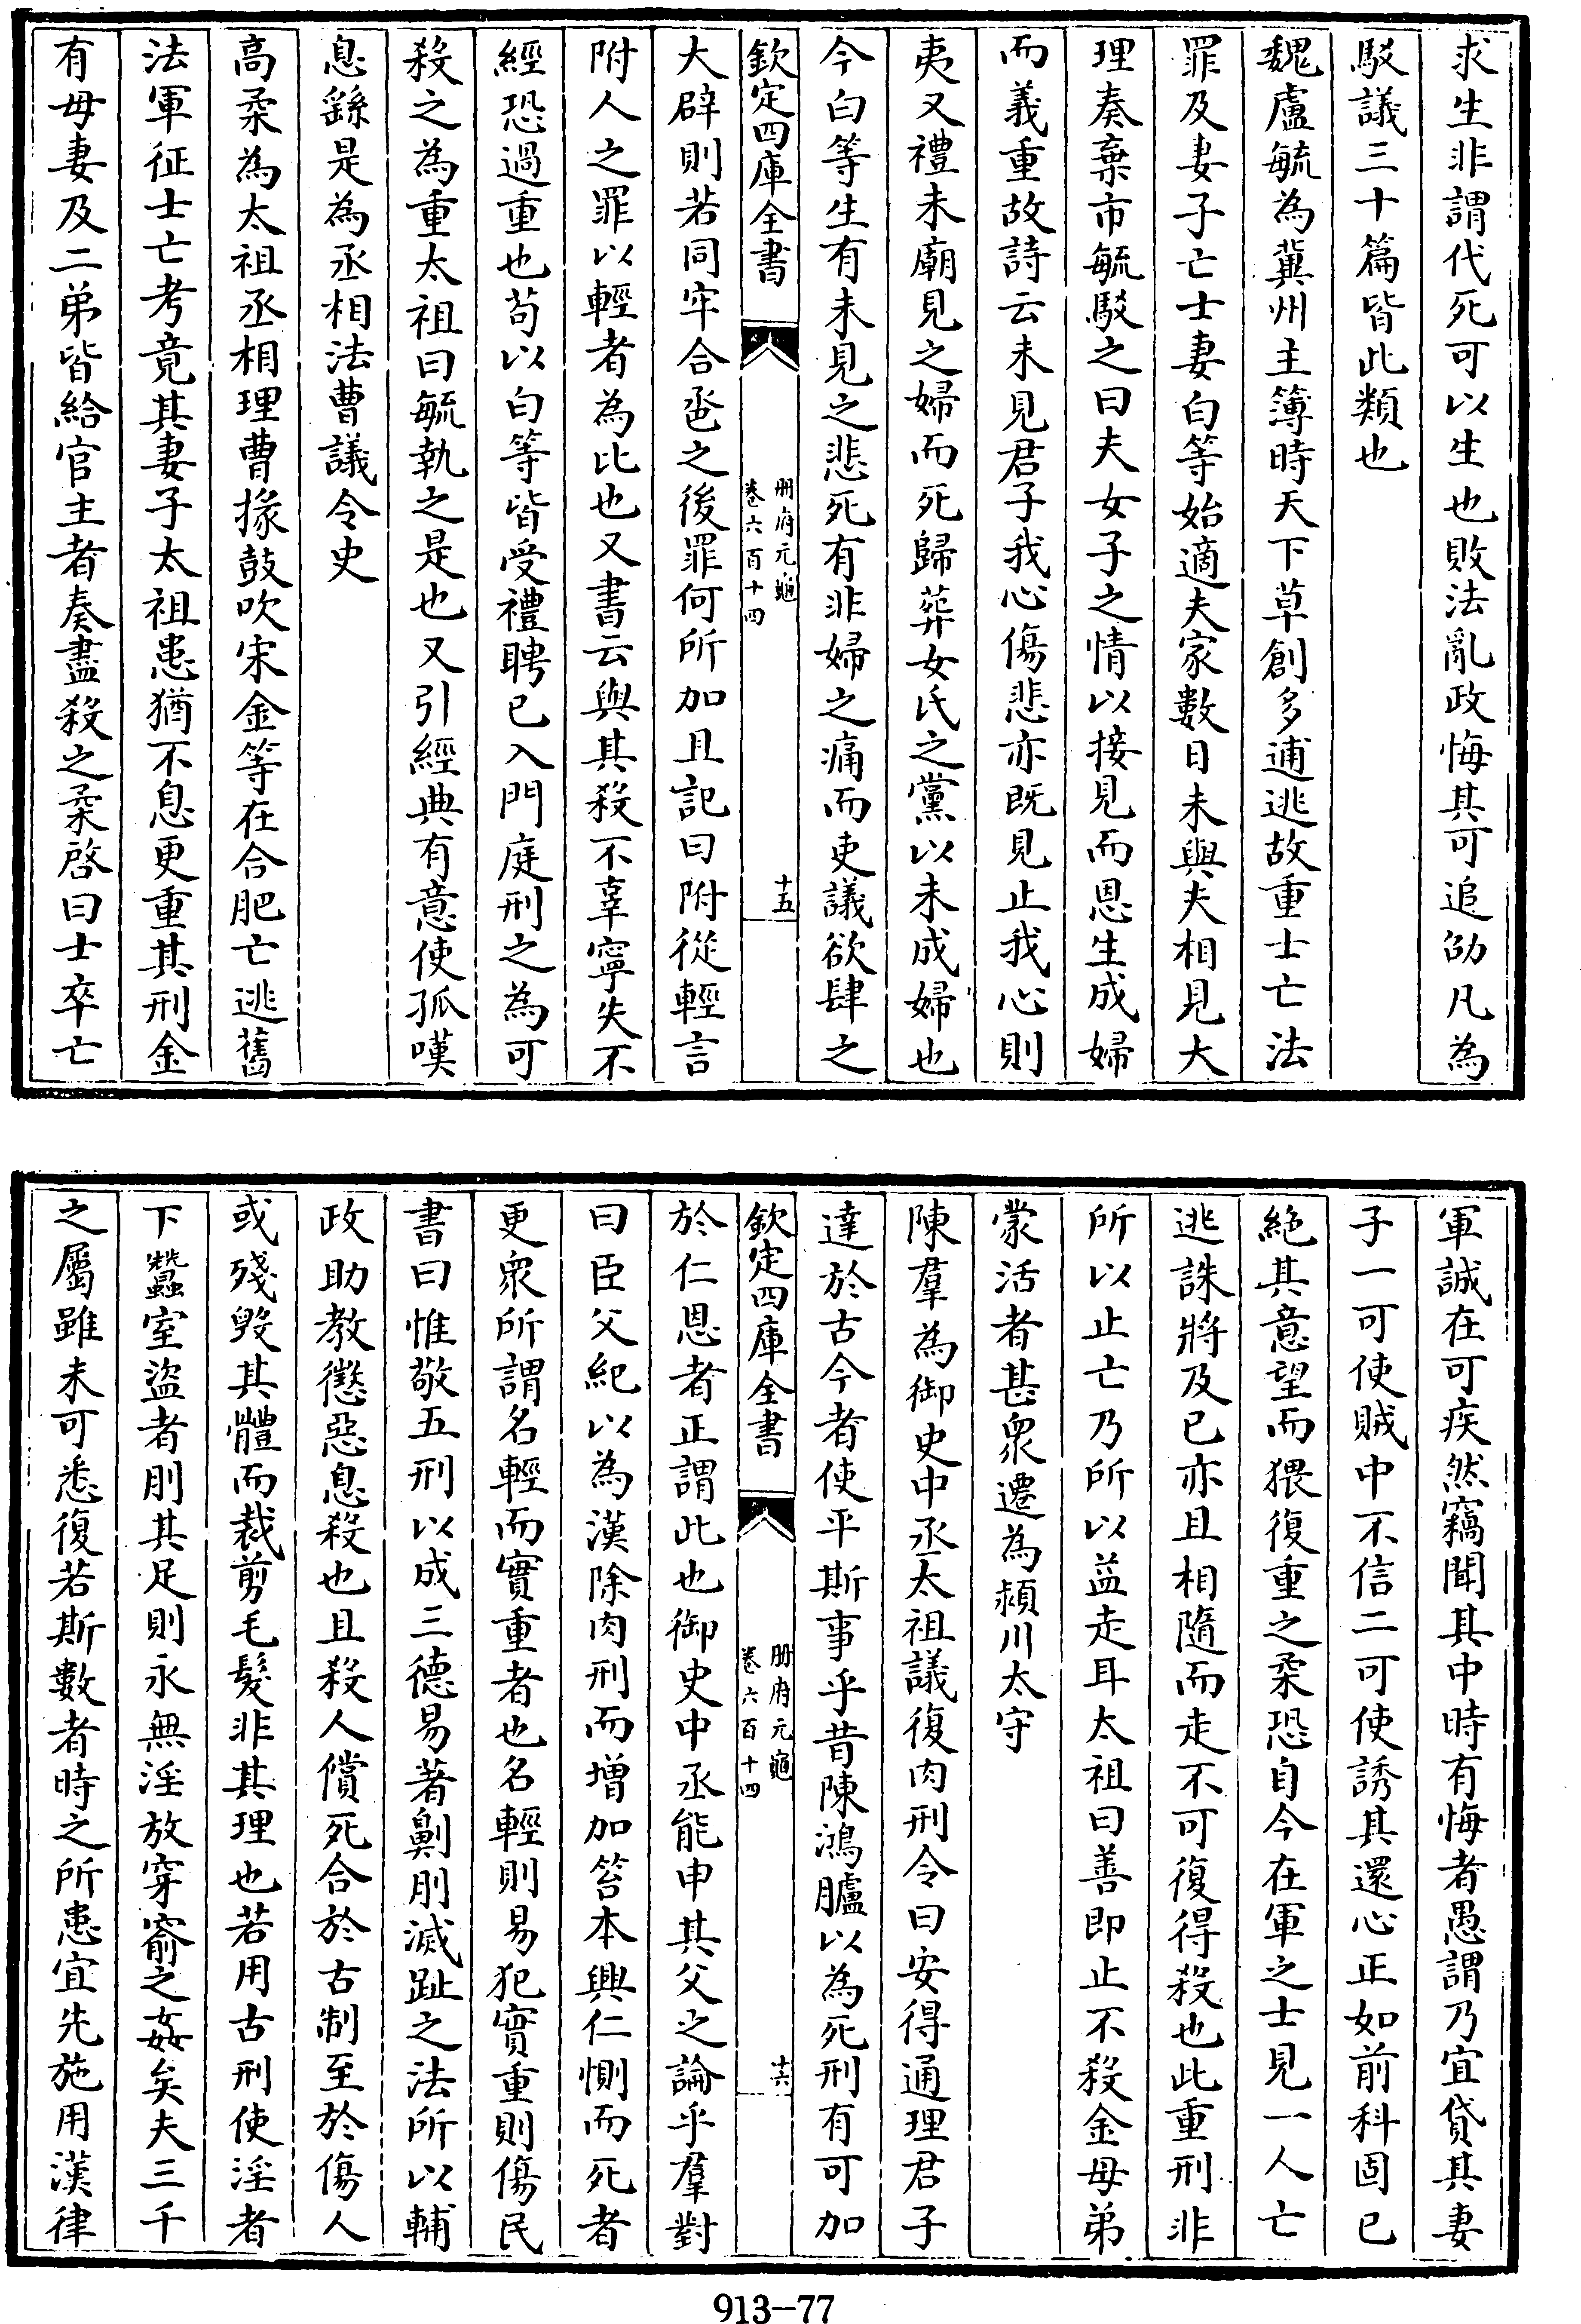 求生非謂代死可以生也敗法亂政悔其可追劭凡為
駁議三十篇皆此類也
魏盧毓為冀州主簿時天下草創多逋逃故重士亡法
罪及妻子亡士妻白等始適夫家數日未與夫相見大
理奏棄市毓駁之曰夫女子之情以接見而恩生成婦
而義重故詩云未見君子我心傷悲亦既見止我心則
夷又禮未廟見之婦而死歸葬女氏之黨以未成婦也
今白等生有未見之悲死有非婦之痛而吏議欲肆之
欽定四庫全書
册府元龜
卷六百十四
十五
大辟則若同牢合巹之後罪何所加且記曰附從輕言
附人之罪以輕者為比也又書云與其殺不辜寧失不
經恐過重也苟以白等皆受禮聘已入門庭刑之為可
殺之為重太祖曰毓執之是也又引經典有意使孤嘆
息繇是為丞相法曹議令史
高柔為太祖丞相理曹掾鼓吹宋金等在合肥亡逃舊
法軍征士亡考竟其妻子太祖患猶不息更重其刑金
有母妻及二弟皆給官主者奏盡殺之柔啓曰士卒亡
軍誠在可疾然竊聞其中時有悔者愚謂乃宜貸其妻
子一可使賊中不信二可使誘其還心正如前科固已
絕其意望而猥復重之柔恐自今在軍之士見一人亡
逃誅將及已亦且相隨而走不可復得殺也此重刑非
所以止亡乃所以益走耳太祖曰善即止不殺金母弟
蒙活者甚衆遷為潁川太守
陳羣為御史中丞太祖議復肉刑令曰安得通理君子
達於古今者使平斯事乎昔陳鴻臚以為死刑有可加
欽定四庫全書
册府元龜
卷六百十四
十六
於仁恩者正謂此也御史中丞能申其父之論乎羣對
曰臣父紀以為漢除肉刑而增加笞本興仁惻而死者
更衆所謂名輕而實重者也名輕則易犯實重則傷民
書曰惟敬五刑以成三德易著劓刖滅趾之法所以輔
政助教懲惡息殺也且殺人償死合於古制至於傷人
或殘毀其體而裁剪毛髮非其理也若用古刑使淫者
下蠶室盜者刖其足則永無淫放穿窬之姦矣夫三千
之屬雖未可悉復若斯數者時之所患宜先施用漢律
913-77